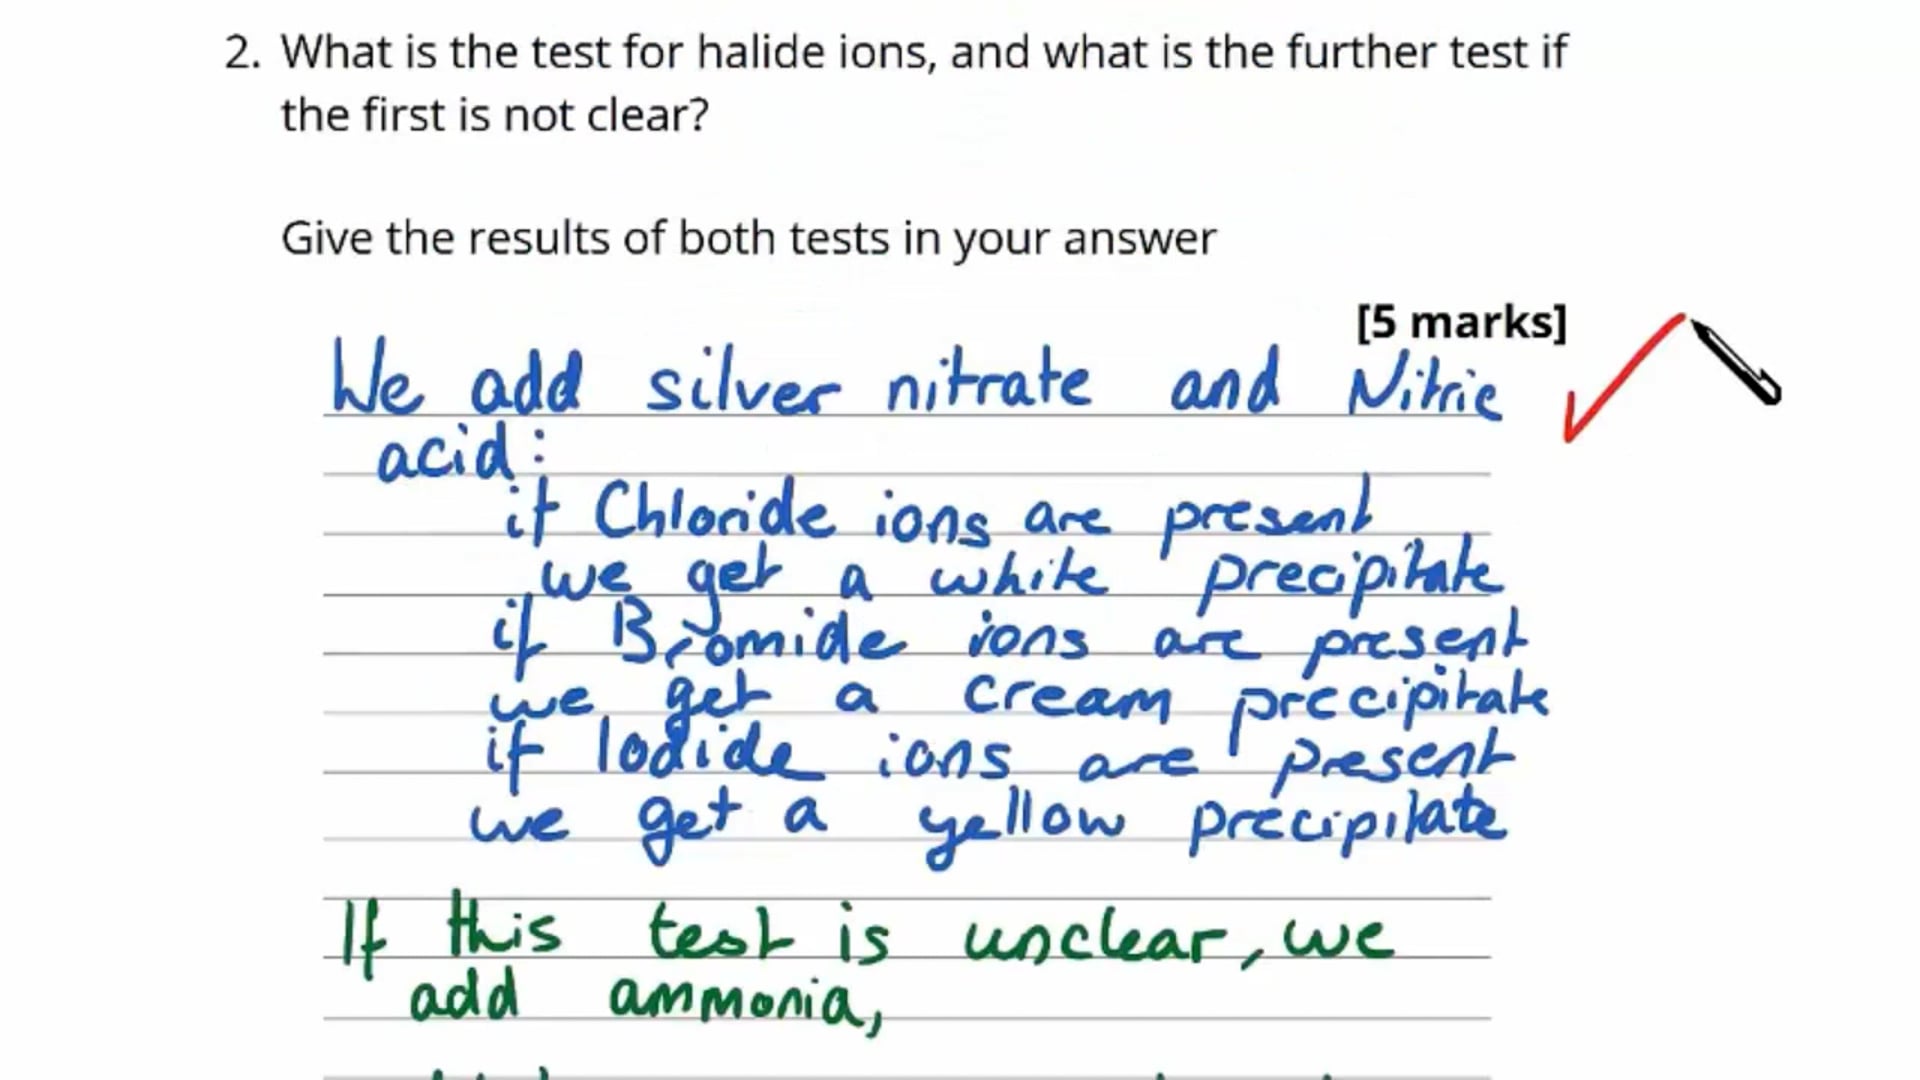 2. What is the test for halide ions, and what is the further test if
the first is not clear?
Give the results of both tests in your answer
[5 marks]
We add silver nitrate and Nitric
acid:
if Chloride ions are present
we get a white precipitate
if Bromide ions are present
we get a cream precipitate
if Iodide ions are present
we get a yellow precipitate
If this test is unclear, we
add ammonia,